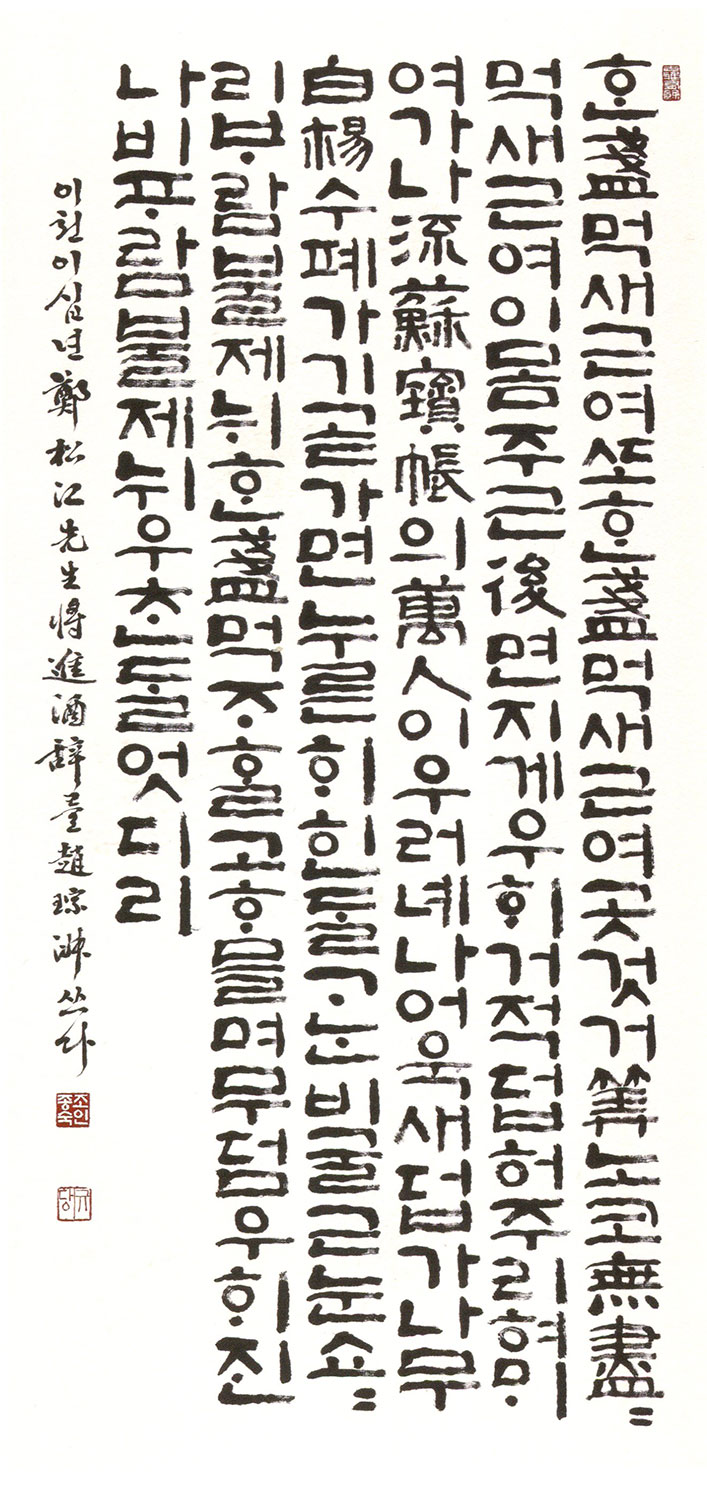 ᄒᆞᆫ盞먹새근여ᄯᅩᄒᆞᆫ盞먹새근여곳것거筭노코無盡〃
먹새근여이몸주근後면지게우ᄒᆡ거적덥허주리혀ᄆᆡ
여가나流蘇寶帳의萬人이우러녜나어욱새덥가나무
白楊수폐가기곧가면누른ᄒᆡᄒᆡᆫᄃᆞᆯᄀᆞᄂᆞᆫ비굴근눈쇼〃
리ᄇᆞ람불제뉘ᄒᆞᆫ盞먹ᄌᆞᄒᆞᆯ고ᄒᆞ믈며무덤우ᄒᆡ진
나비ᄑᆞ람불제뉘우ᄎᆞᆫᄃᆞᆯ엇디리
이천이십년鄭松江先生將進酒辭를趙琮淑쓰다
조인종숙
규당